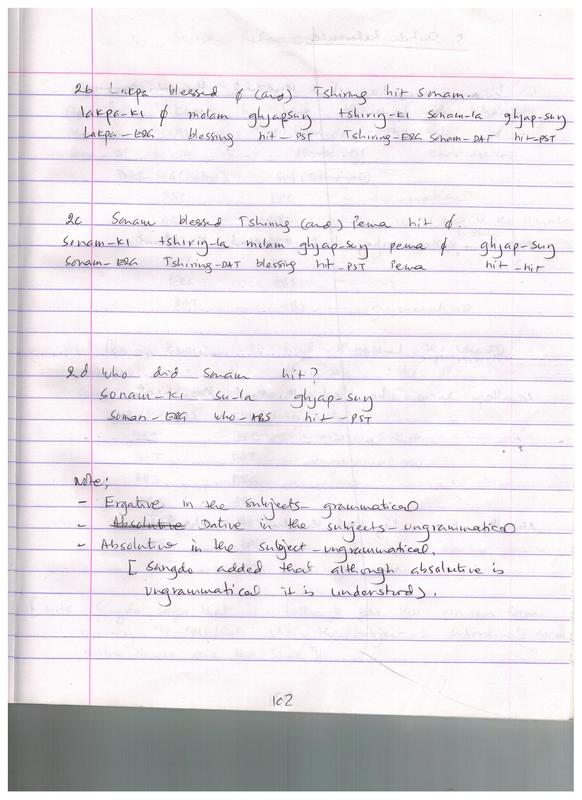 2b Lakpa blessed ϕ (and) Tshiring hit Sonam.
lakpa-ki ϕ molam ghjapsuŋ tshiriŋ-ki sonam-la ghjap-suŋ
Lakpa-ERG blessing hit-PST Tshiring-ERG Sonam-DAT hit-PST
2c Sonam blessed Tshiring (and) Pema hit ϕ.
sonam-ki tshiriŋ-la molam ghjap-suŋ pema ϕ ghjap-suŋ
Sonam-ERG Tshiring-DAT blessing hit-PST Pema hit-hit
2d Who did Sonam hit?
sonam-ki su-la ghjap-suŋ
Soman-ERG who-ABS hit-PST
Note;
- Ergative in the subjects-grammatical
- Absolutive Dative in the subjects-ungrammatical
- Absolutive in the subject-ungrammatical.
[ Sangdo added that although absolutive is
ungrammatical it is understood).
102